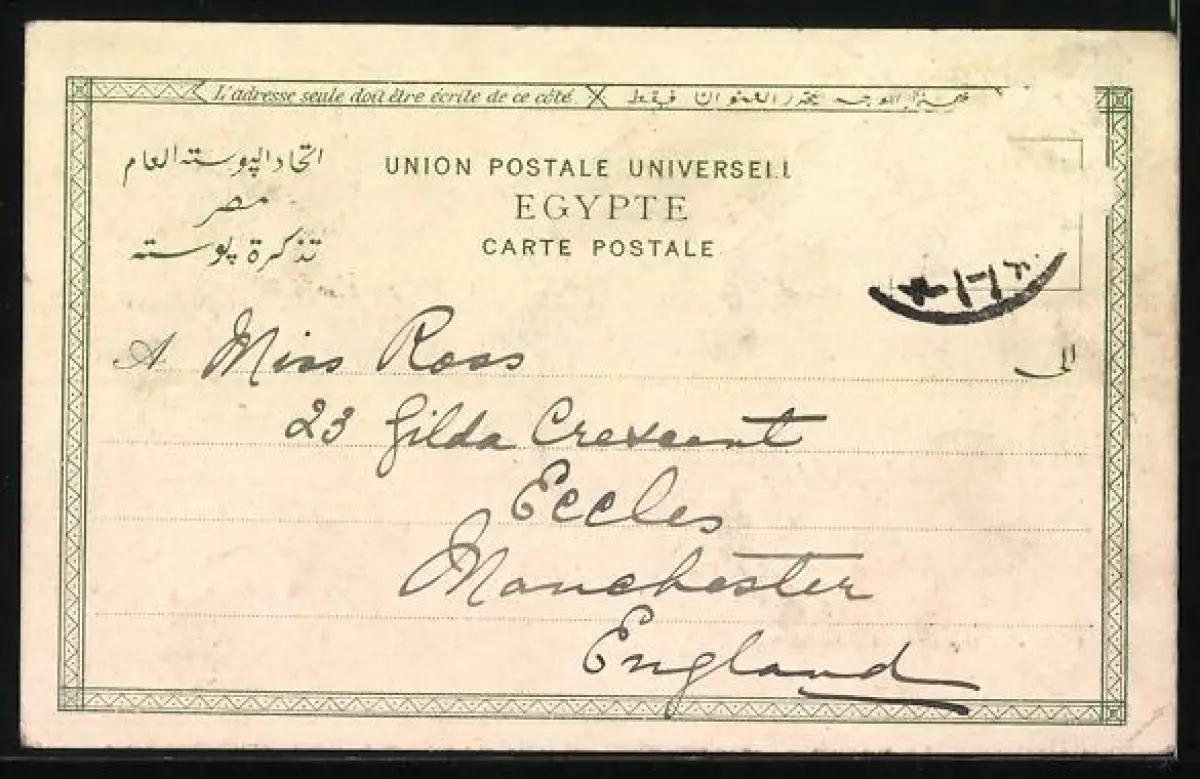 L'adresse seule doit être écrite de ce côté
UNION POSTALE UNIVERSELL
EGYPTE
CARTE POSTALE
اتحاد الپوسته العام
مصر
تذكرة پوسته
A Miss Ross
الى
23 Gilda Crescent
Eccles
Manchester
England